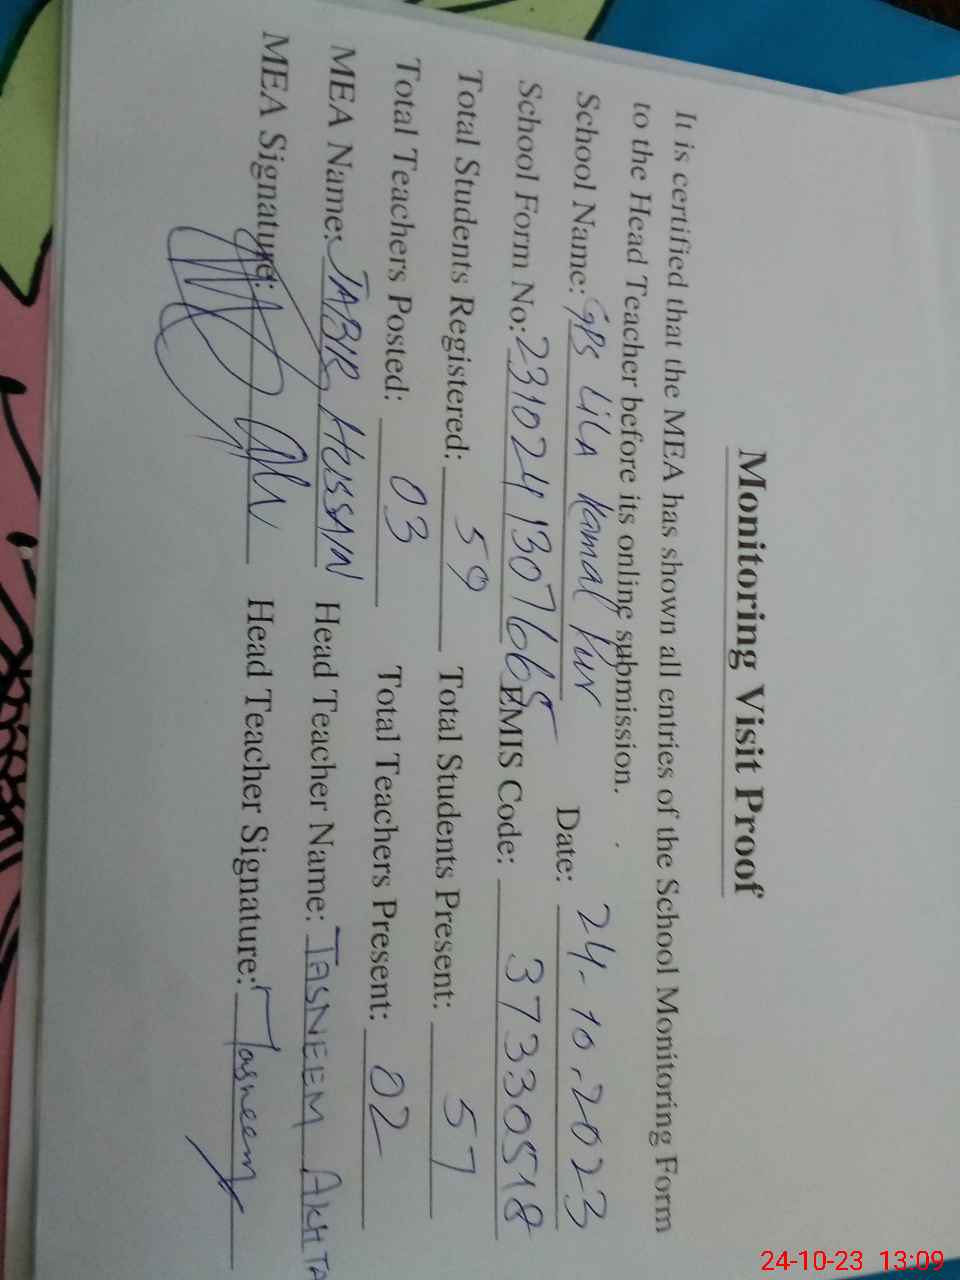 Monitoring Visit Proof
It is certified that the MEA has shown all entries of the School Monitoring Form
to the Head Teacher before its online submission.
School Name: GPS LILA Kamal Pur Date: 24-10-2023
School Form No: 2310241307665 EMIS Code: 37330518
Total Students Registered: 59 Total Students Present: 57
Total Teachers Posted: 03 Total Teachers Present: 02
MEA Name: JABIR HUSSAIN Head Teacher Name: TASNEEM AKHTA
MEA Signature: Head Teacher Signature: Tasneem
24-10-23 13:09